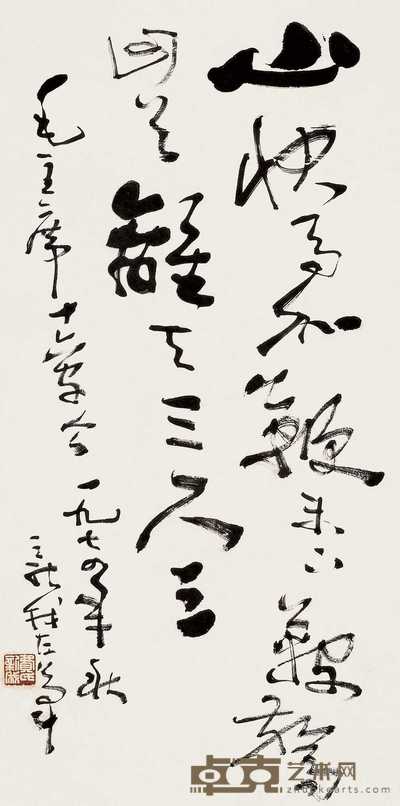 山快馬加鞭未下鞍驚
回首離天三尺三
毛主席十六字令
一九七四年秋
我左
卓克艺术网
zhuokearts.com